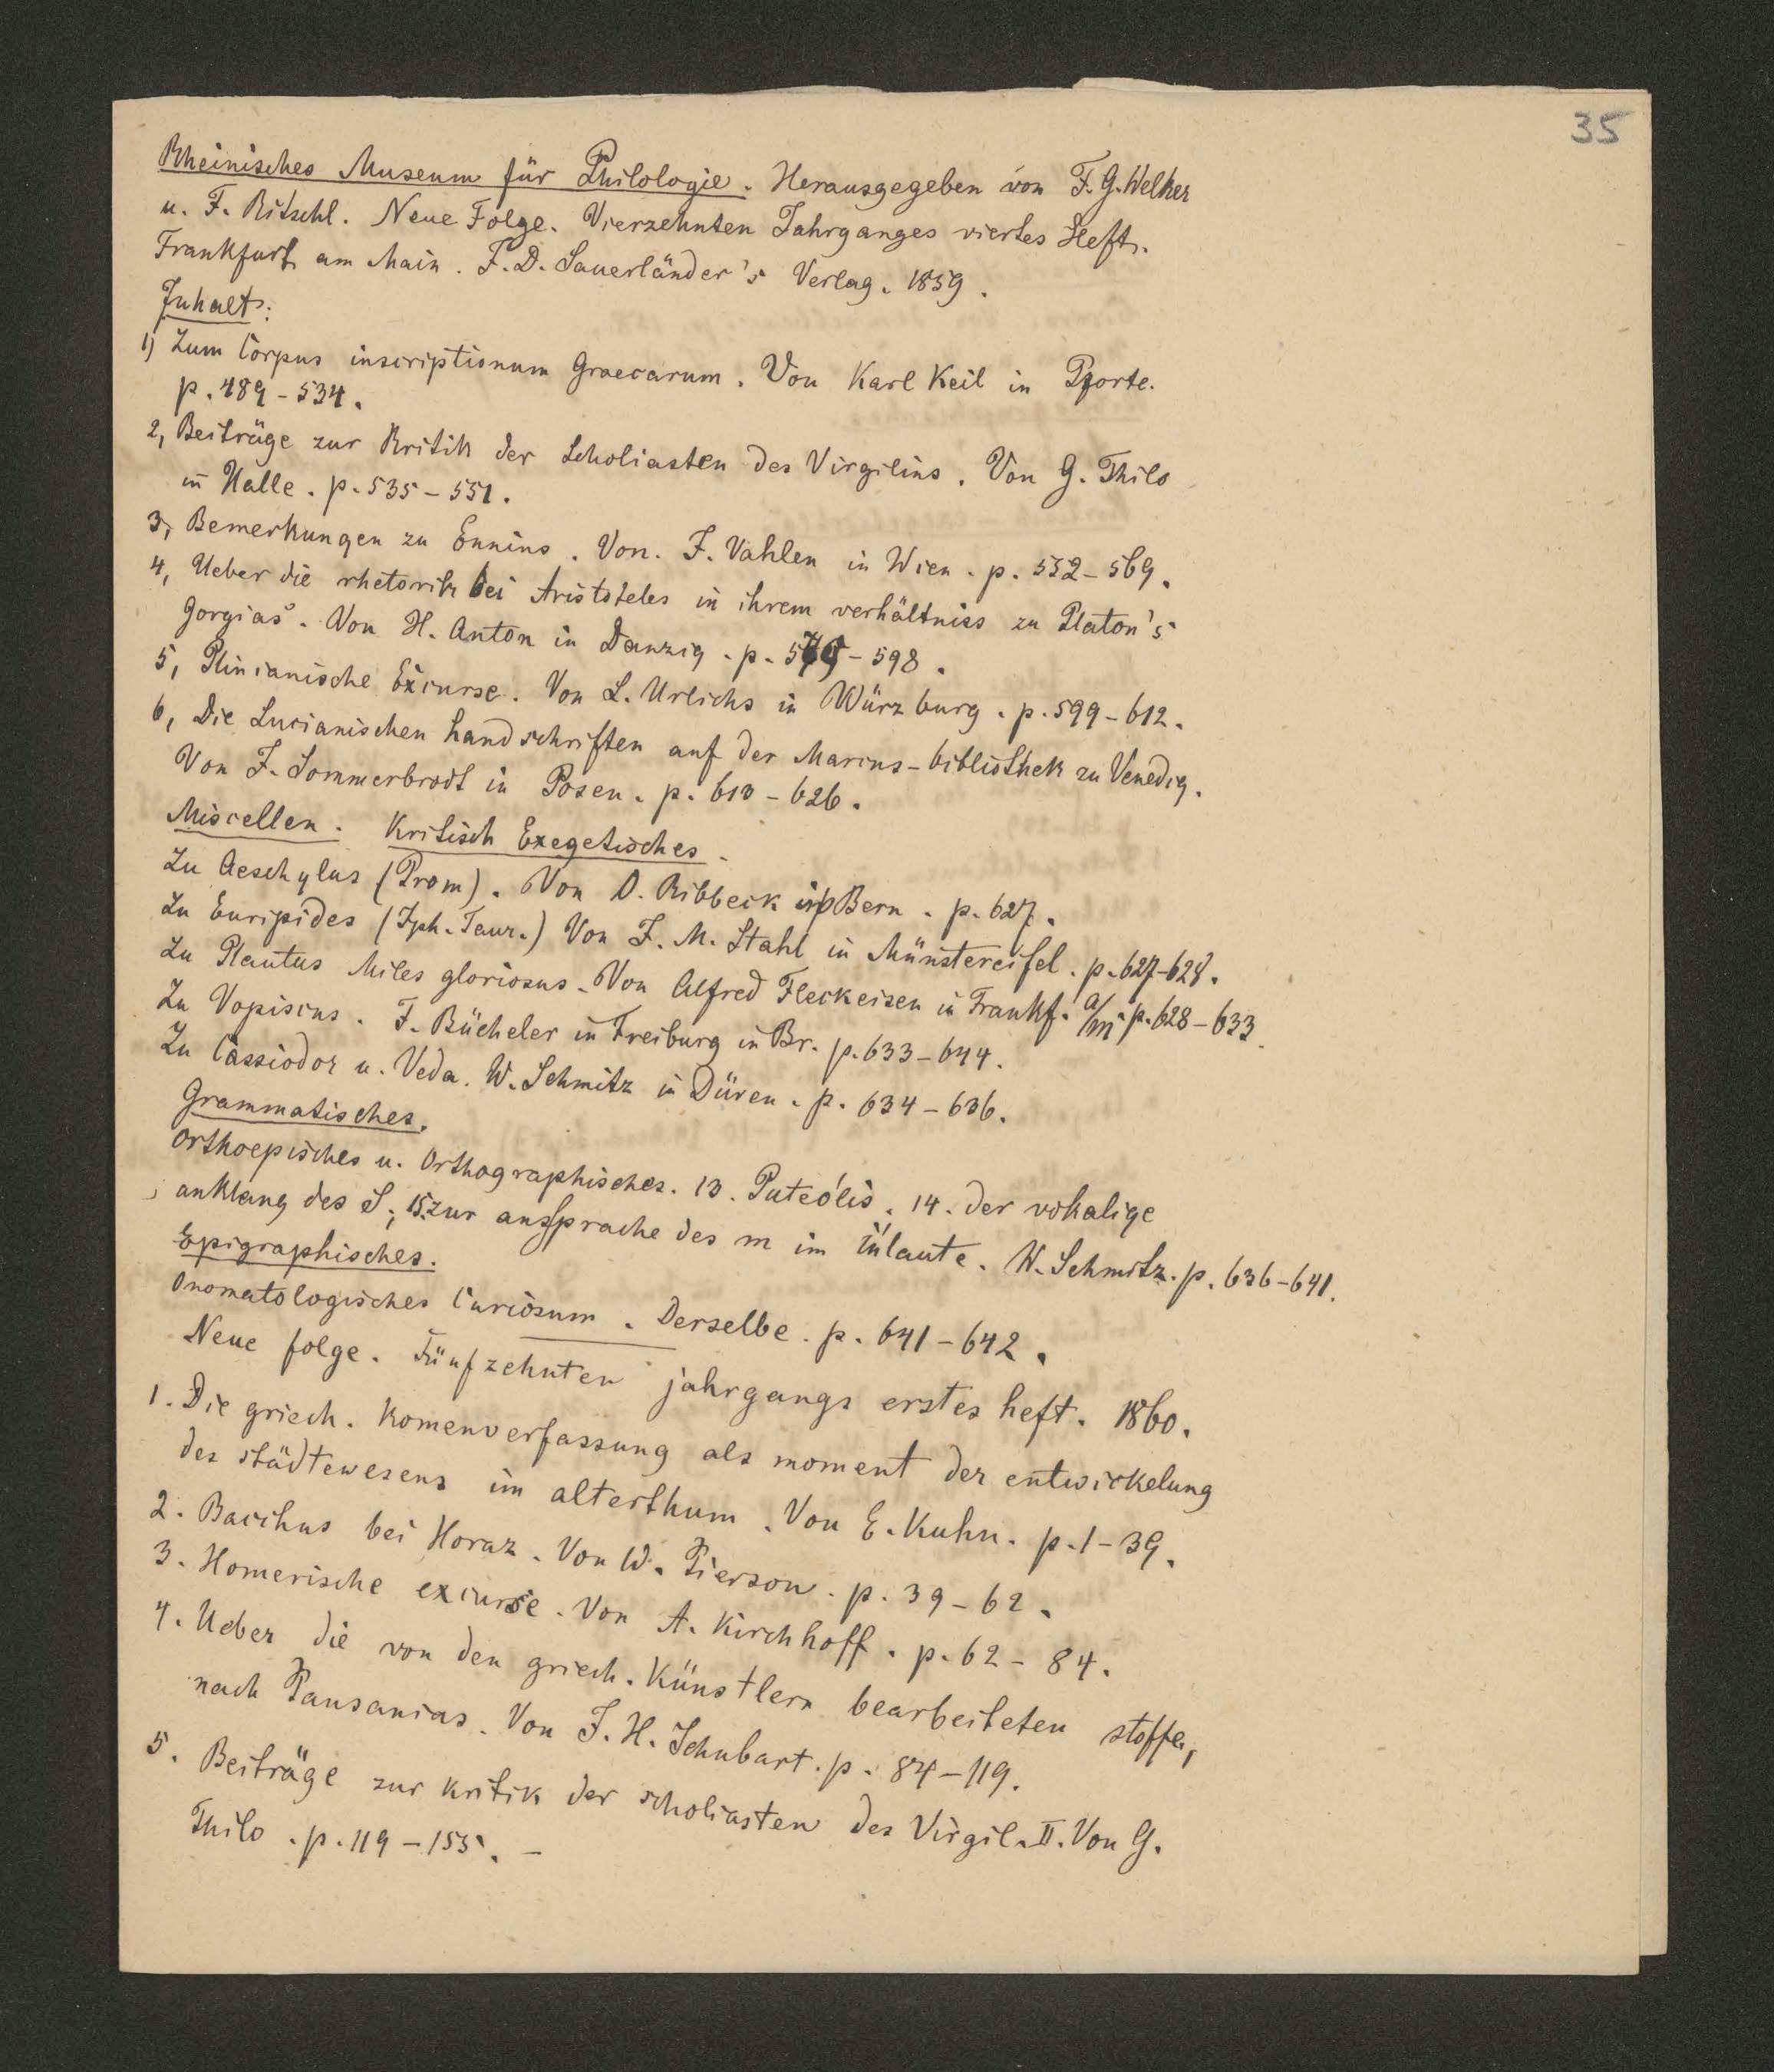 35
Rheinisches Museum für Philologie. Herausgegeben von F. G. Welker
u. F. Ritschl. Neue Folge. Vierzehnten Jahrganges viertes Heft.
Frankfurt am Main. J. D. Sauerländer's Verlag. 1859.
Inhalt:
1) Zum Corpus inscriptionum Graecarum. Von Karl Keil in Pforte.
p. 489-534.
2, Beiträge zur Kritik der Scholiasten des Virgilius. Von G. Thilo
in Halle. p. 535-551.
3, Bemerkungen zu Ennius. Von. J. Vahlen in Wien. p. 552-569.
4, Ueber die rhetorik bei Aristoteles in ihrem verhältniss zu Platon's
Gorgias. Von H. Anton in Danzig. p. - 598.
5, Plinianische Excurse. Von L. Urlichs in Würzburg. p. 599-612.
6, Die Lucianischen handschriften auf der Marcus-bibliothek zu Venedig.
Von J. Sommerbrodt in Posen. p. 613-626.
Miscellen. Kritisch Exegetisches.
Zu Aeschylus (Prom). Von O. Ribbeck in Bern. p. 627.
Zu Euripides (Iph. Taur.) Von J. M. Stahl in Münstereifel. p. 627-628.
Zu Plautus Miles gloriosus. Von Alfred Fleckeisen in Frankf. a/m. p. 628-633.
Zu Vopiscus. F. Bücheler in Freiburg in Br. p. 633-644.
Zu Cassiodor u. Veda. W. Schmitz in Düren. p. 634-636.
Grammatisches.
Orthoepisches u. Orthographisches. 13. Puteólis. 14. der vokalige
anklang des S; 15. zur aussprache des m im inlaute. W. Schmitz. p. 636-641.
Epigraphisches.
Onomatologisches Curiosum. Derselbe. p. 641-642.
Neue folge. Fünfzehnten jahrgangs erstes heft. 1860.
1. Die griech. Komenverfassung als moment der entwickelung
des städtewesens im alterthum. Von E. Kuhn. p. 1-39.
2. Bacchus bei Horaz. Von W. Pierson. p. 39-62.
3. Homerische excurse. Von A. Kirchhoff. p. 62-84.
4. Ueber die von den griech. Künstlern bearbeiteten stoffe,
nach Pausanias. Von J. H. Schubart. p. 84-119.
5. Beiträge zur kritik der scholiasten des Virgil. II. Von G.
Thilo. p. 119-155. -